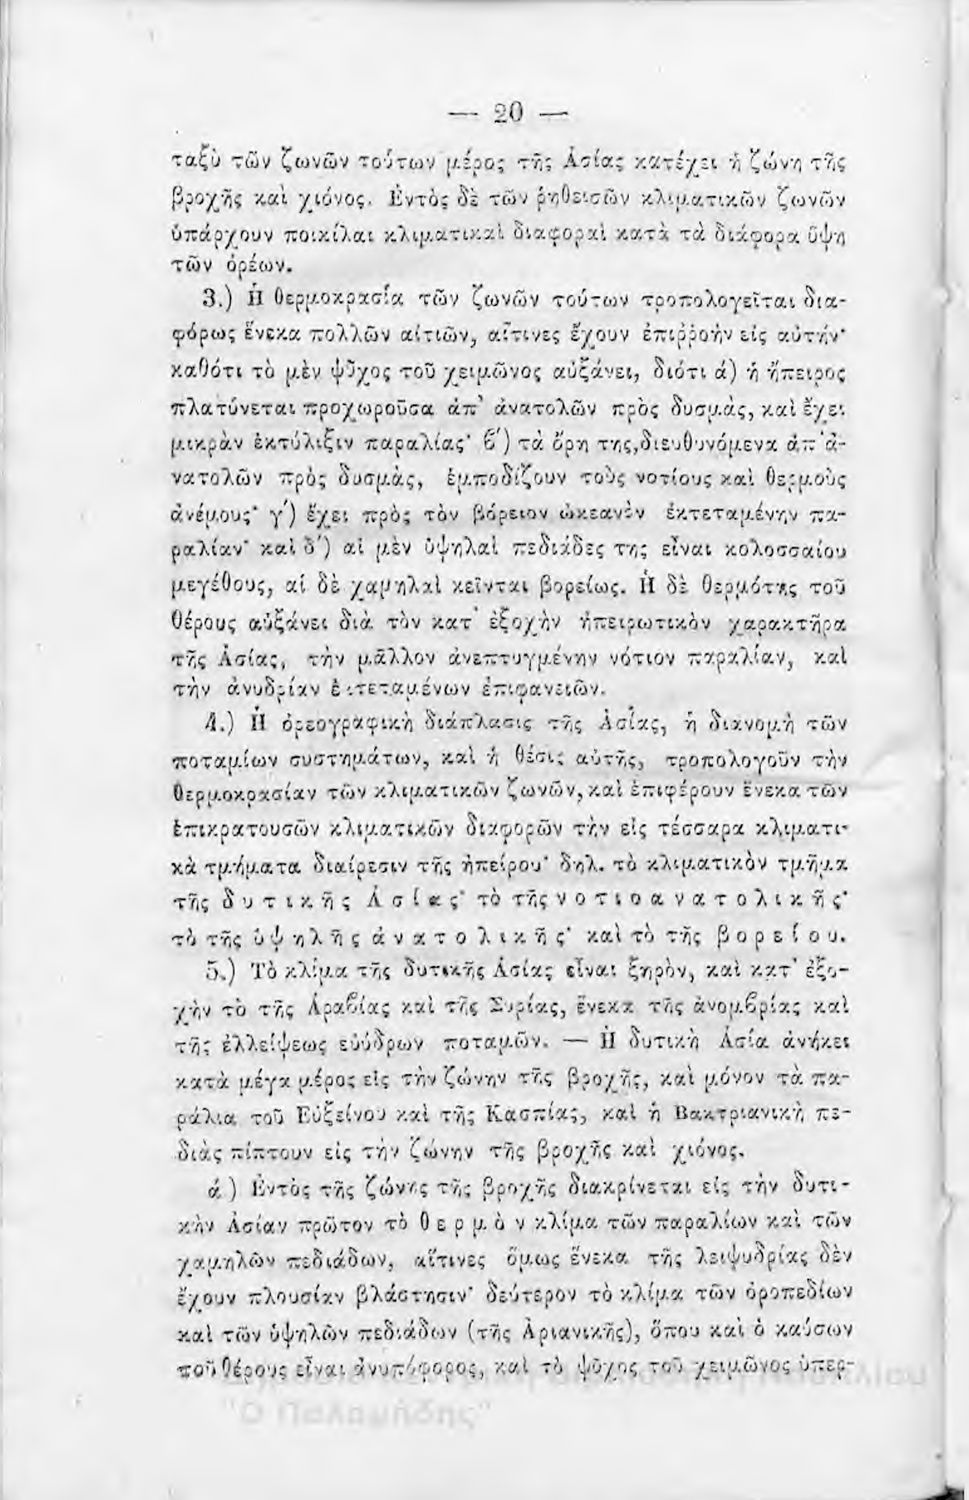 — 20 —
ταξὺ τῶν ζωνῶν τούτων μέρος τῆς Ἀσίας κατέχει ἡ ζώνη τῆς
βροχῆς καὶ χιόνος. Ἐντὸς δὲ τῶν ῥηθεισῶν κλιματικῶν ζωνῶν
ὑπάρχουν ποικίλαι κλιματικαὶ διαφοραὶ κατὰ τὰ διάφορα ὕψη
τῶν ὀρέων.
3.) Ἡ θερμοκρασία τῶν ζωνῶν τούτων τροπολογεῖται δια-
φόρως ἕνεκα πολλῶν αἰτιῶν, αἵτινες ἔχουν ἐπιῤῥοὴν εἰς αὐτήν·
καθότι τὸ μὲν ψῦχος τοῦ χειμῶνος αὐξάνει, διότι ά) ἡ ἤπειρος
πλατύνεται προχωροῦσα ἀπ᾽ ἀνατολῶν πρὸς δυσμὰς, καὶ ἔχει
μικρὰν ἐκτύλιξιν παραλίας· ϐ′) τὰ ὄρη της,διευθυνόμενα ἀπ᾽ἀ-
νατολῶν πρὸς δυσμὰς, ἐμποδίζουν τοὺς νοτίους καὶ θερμοὺς
ἀνέμους· γ′) ἔχει πρὸς τὸν βόρειον ὠκεανὸν ἐκτεταμένην πα-
ραλίαν· καὶ δ′) αἱ μὲν ὑψηλαὶ πεδιάδες της εἶναι κολοσσαίου
μεγέθους, αἱ δὲ χαμηλαὶ κεῖνται βορείως. Ἡ δὲ θερμότης τοῦ
θέρους αὐξάνει διὰ τὸν κατ᾽ ἐξοχὴν ἠπειρωτικὸν χαρακτῆρα
τῆς Ἀσίας, τὴν μᾶλλον ἀνεπτυγμένην νότιον παραλίαν, καὶ
τὴν ἀνυδρίαν ἐκτεταμένων ἐπιφανειῶν.
4.) Ἡ ὀρεογραφικὴ διάπλασις τῆς Ἀσίας, ἡ διανομὴ τῶν
ποταμίων συστημάτων, καὶ ἡ θέσις αὐτῆς, τροπολογοῦν τὴν
θερμοκρασίαν τῶν κλιματικῶν ζωνῶν, καὶ ἐπιφέρουν ἕνεκα τῶν
ἐπικρατουσῶν κλιματικῶν διαφορῶν τὴν εἰς τέσσαρα κλιματι-
κὰ τμήματα διαίρεσιν τῆς ἠπείρου· δηλ. τὸ κλιματικὸν τμῆμα
τῆς δ υ τ ι κ ῆ ς Ἀ σ ί α ς· τὸ τῆς ν ο τ ι ο α ν α τ ο λ ι κ ῆ ς·
τὸ τῆς ὑ ψ η λ ῆ ς ἀ ν α τ ο λ ι κ ῆ ς· καὶ τὸ τῆς β ο ρ ε ί ο υ.
5.) Τὸ κλίμα τῆς δυτικῆς Ἀσίας εἶναι ξηρὸν, καὶ κατ᾽ ἐξο-
χὴν τὸ τῆς Ἀραϐίας καὶ τῆς Συρίας, ἕνεκα τῆς ἀνομϐρίας καὶ
τῆς ἐλλείψεως εὐύδρων ποταμῶν. — Ἡ δυτικὴ Ἀσία ἀνήκει
κατὰ μέγα μέρος εἰς τὴν ζώνην τῆς βροχῆς, καὶ μόνον τὰ πα-
ράλια τοῦ Εὐξείνου καὶ τῆς Κασπίας, καὶ ἡ Βακτριανικὴ πε-
διὰς πίπτουν εἰς τὴν ζώνην τῆς βροχῆς καὶ χιόνος.
ά) Ἐντὸς τῆς ζώνης τῆς βροχῆς διακρίνεται εἰς τὴν δυτι-
κὴν Ἀσίαν πρῶτον τὸ θ ε ρ μ ὸ ν κλίμα τῶν παραλίων καὶ τῶν
χαμηλῶν πεδιάδων, αἵτινες ὅμως ἕνεκα τῆς λειψυδρίας δὲν
ἔχουν πλουσίαν βλάστησιν· δεύτερον τὸ κλίμα τῶν ὀροπεδίων
καὶ τῶν ὑψηλῶν πεδιάδων (τῆς Ἀριανικῆς), ὅπου καὶ ὁ καύσων
τοῦ θέρους εἶναι ἀνυπόφορος, καὶ τὸ ψῦχος τοῦ χειμῶνος ὑπερ-
"Ο Παλαμήδης"